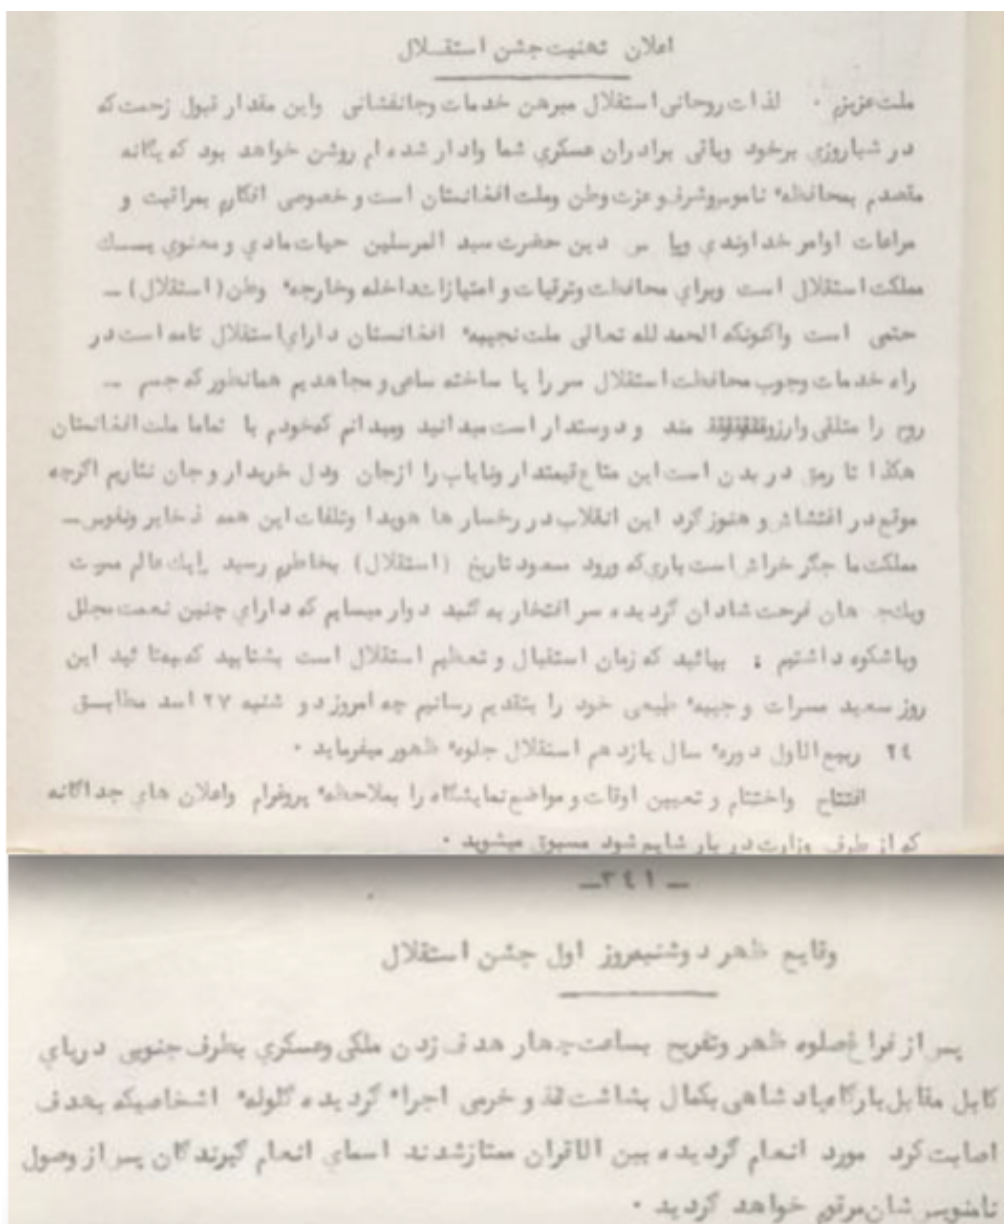 اعلان تهنیت جشن استقلال
ملت عزیزم ۰ لذات روحانی استقلال مبرهن خدمات وجانفشانی واین مقدار قبول زحمت که
در شباروزی برخود وباقی برادران عسکري شما وادار شده ام روشن خواهد بود که یگانه
مقصدم بمحافظهٔ ناموس وشرف وعزت وطن وملت افغانستان است و خصوصی افکارم بمراقبت و
مراعات اوامر خداوندي وپا س دین حضرت سید المرسلین حیات مادي و معنوي یسـك
مملکت استقلال است وبراي محافظت وترقیات و امتیازات داخله وخارجهٔ وطن (استقلال) ــ
حتمی است واکنونکه الحمد لله تعالی ملت نجیبهٔ افغانستان داراي استقلال تامه است در
راه خدمات وجوب محافظت استقلال سر را پا ساخته ساعی و مجاهدیم همانطور که جسم ــ
روح را متلقی وارزو مند و دوستدار است میدانید ومیدانم کهخودم با تماما ملت افغانستان
هکذا تا رمق در بدن است این متاع قیمتدار ونایاب را ازجان ودل خریدار و جان نثاریم اگرچه
موقع در اغتشاش و هنوز گرد این انقلاب در رخسار ها هویدا وتلفات این همه ذخایر ونفوس ــ
مملکت ما جگر خراش است باری که ورود مسعود تاریخ (استقلال) بخاطرم رسید رایك عالم مسرت
ویکجـ هان فرحت شادان گردیده سر افتخار به گنبد دوار میسایم که داراي چنین نعمت مجلل
وباشکوه داشتیم ؛ بیائید که زمان استقبال و تعظیم استقلال است بشتابید که بهتا ئید این
روز سعید مسرات وجیبهٔ طبیعی خود را بتقدیم رسانیم چه امروز دو شنبه ۲۷ اسد مطابـق
۲٤ ربیع الاول دورهٔ سال یازدهم استقلال جلوهٔ ظهور میفرماید ۰
افتتاح واختتام و تعیین اوقات و مواضع نمایشگاه را بملاحظهٔ پروگرام واعلان هاي جداگانه
که از طرف وزارت دربار شایع شود مسبوق میشوید ۰
ــ۳٤۱ــ
وقایع ظهر دوشنبهروز اول جشن استقلال
پس از فراغ صلوه ظهر وتفریح بساعت چهار هدف زدن ملکی وعسکري بطرف جنوبی دریاي
کابل مقابل بارگاه پادشاهی بکمال بشاشت و خرمی اجراء گردیده گلولهٔ اشخاصیکه بهدف
اصابت کرد مورد انعام گردیده بین الاقران ممتاز شدند اسماي انعام گیرندگان پس از وصول
نامنویس شان مرقوم خواهد گردید ۰